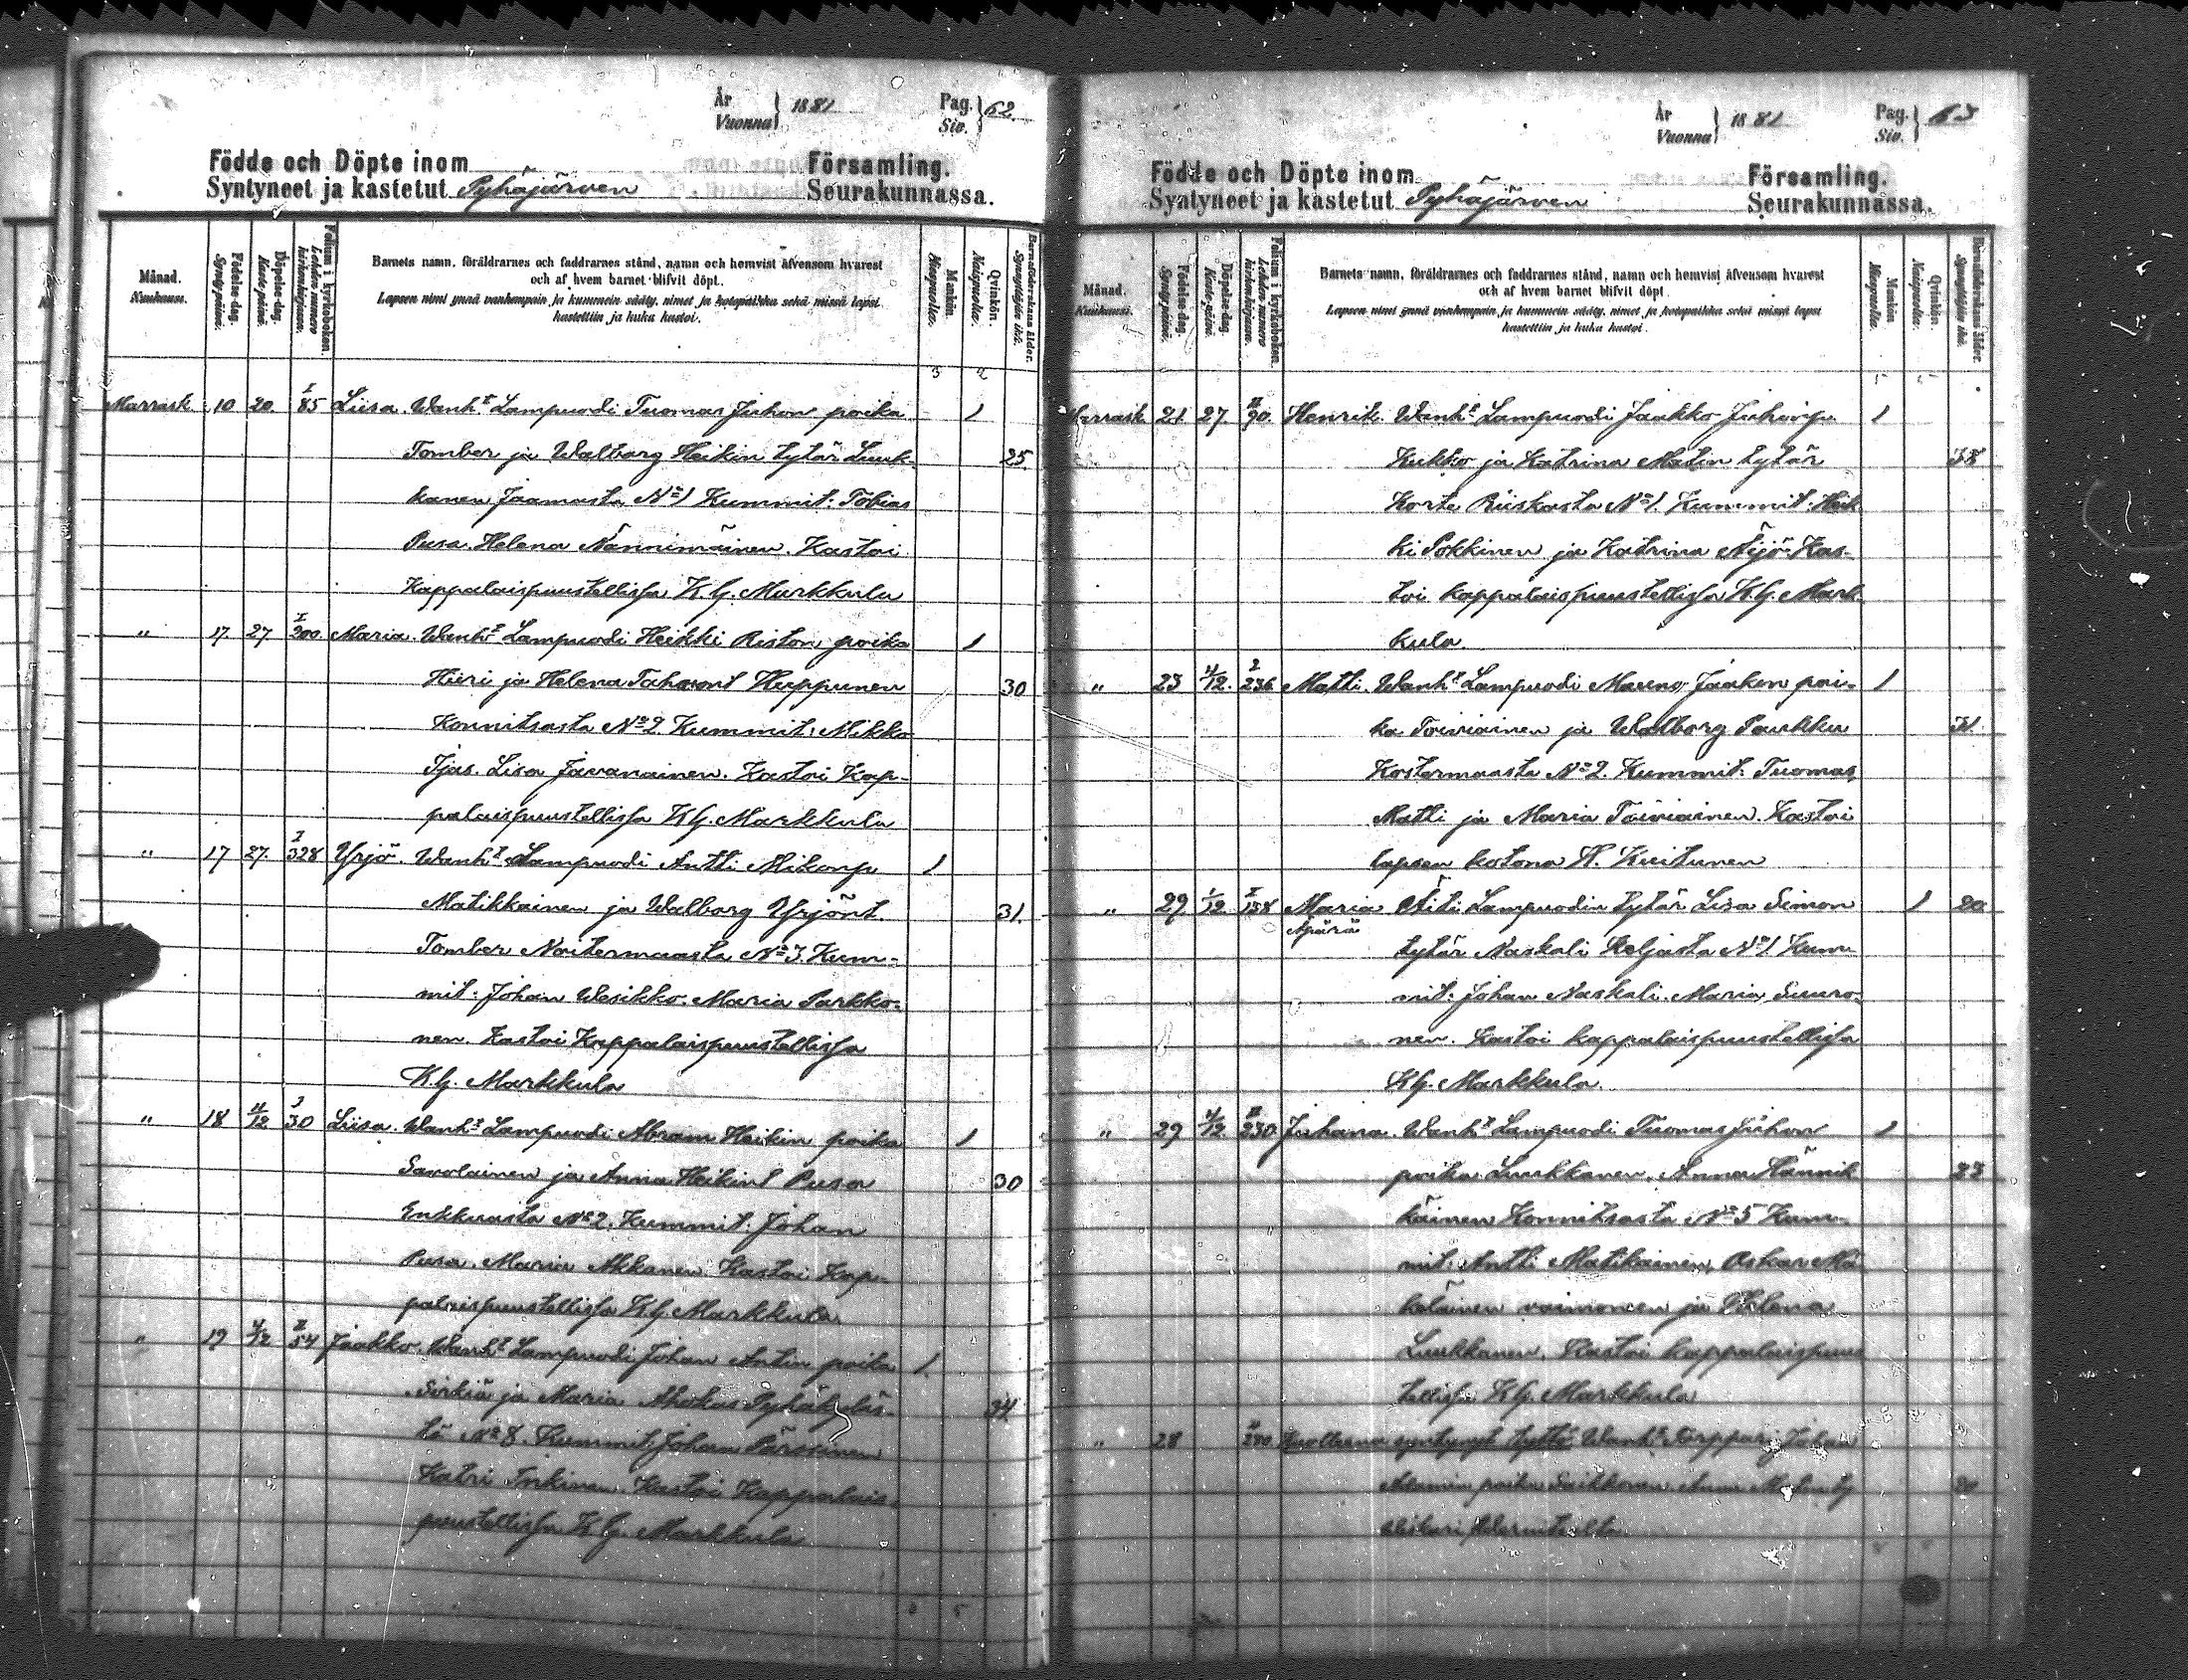 År
Vuonna } 1881
Pag.
Siv. } 62
Födde och Döpte inom Församling.
Syntyneet ja kastetut Pyhäjärven Seurakunnassa.
Månad.
Kuukausi.
Födelse-dag.
Syntypäivä.
Döpelse-dag.
Kastepäivä.
Folium i kyrkoboken.
Lehden numero kirkonkirjassa.
Barnets namn, föräldrarnes och faddrarnes stånd, namn och hemvist äfvensom hvarest
och af hvem barnet blifvit döpt.
Lapsen nimi ynnä vanhempain ja kummein sääty, nimet ja kotopaikka sekä missä lapsi
kastettiin ja kuka kastoi.
Mankön.
Miespuolta.
Qvinkön.
Naispuolta.
Barnaföderskans ålder.
Synnyttäjän ikä.
3 2
Marrask. 10 20. I 85 Liisa. Wanht Lampuodi Tuomas Juhon poika 1
Tomber ja Walborg Heikin tytär Luuk- 25.
kanen Jaamasta No 1 Kummit: Tobias
Pusa. Helena Nännimäinen. Kastoi
Kappalaispuustellissa K.G. Markkula
" 17. 27 I 200. Maria. Wanht Lampuodi Heikki Riston poika 1
Hiiri ja Helena Tahvont Huppunen 30
Konnitsasta No 2. Kummit: Mikko
Ijas. Lisa Javanainen. Kastoi Kap-
palaispuustellissa K.G. Markkula
" 17 27. I 328 Yrjö. Wanht Lampuodi Antti Mikonp 1
Matikkainen ja Walborg Yrjönt. 31.
Tomber Noitermaasta No 3. Kum-
mit: Johan Wesikko. Maria Parkko-
nen. Kastoi Kappalaispuustellissa
K.G. Markkula
" 18 4/12 I 30 Liisa. Wanht Lampuodi Abram Heikin poika 1
Savolainen ja Anna Heikint Pusa 30
Enkkuasta No 2. Kummit: Johan
Pusa. Maria Akkanen. Kastoi Kap-
palaispuustellissa K.G. Markkula
" 19 4/12 II 54 Jaakko. Wanht Lampuodi Johan Antin poika 1.
Sirkiä ja Maria Ahokas Pyhäkyläs- 34
tä No 8. Kummit: Johan Pärskinen
Katri Inkinen. Kastoi Kappalais-
puustellissa K.G. Markkula
År
Vuonna } 1881
Pag.
Siv. } 63
Födde och Döpte inom Församling.
Syntyneet ja kastetut Pyhäjärven Seurakunnassa.
Månad.
Kuukausi.
Födelse-dag.
Syntypäivä.
Döpelse-dag.
Kastepäivä.
Folium i kyrkoboken.
Lehden numero kirkonkirjassa.
Barnets namn, föräldrarnes och faddrarnes stånd, namn och hemvist äfvensom hvarest
och af hvem barnet blifvit döpt.
Lapsen nimi ynnä vanhempain ja kummein sääty, nimet ja kotopaikka sekä missä lapsi
kastettiin ja kuka kastoi.
Mankön.
Miespuolta.
Qvinkön.
Naispuolta.
Barnaföderskans ålder.
Synnyttäjän ikä.
Marrask. 21. 27. II 90. Henrik. Wanht Lampuodi Jaakko Juhonp. 1
Kukko ja Katrina Matin tytär 38
Korte Riiskasta No 1. Kummit: Heik
ki Pokkinen ja Katrina Äijö. Kas-
toi kappalaispuustellissa K.G. Mark
kula.
" 23 4/12. I 236 Matti. Wanht Lampuodi Mauno Jaakon poi- 1
ka Toiviainen ja Walborg Paukku 31.
Kostermaasta No 2. Kummit: Tuomas
Matti ja Maria Toiviainen. Kastoi
lapsen kotona H. Kuitunen
" 29 1/12. I 158 Maria Äiti Lampuodin tytär Lisa Simon 1 20
Äpärä
tytär Naskali Keljasta No 1. Kum-
mit: Johan Naskali. Maria Suuro-
nen. Kastoi kappalaispuustellissa
K.G. Markkula.
" 29 4/12. II 230. Juhana. Wanht Lampuodi Tuomas Juhon 1
poika Luukkanen. Anna Hännik 23
käinen Konnitsasta No 5 Kum-
mit: Antti Matikainen, Oskar Mä
keläinen vaimoneen ja Helena
Luukkanen. Kastoi kappalaispuus
tellissa K.G. Markkula
" 28 II 280 Kuolleena syntynyt tyttö. Wanht Torppari Johan
Adamin poika Anna 20